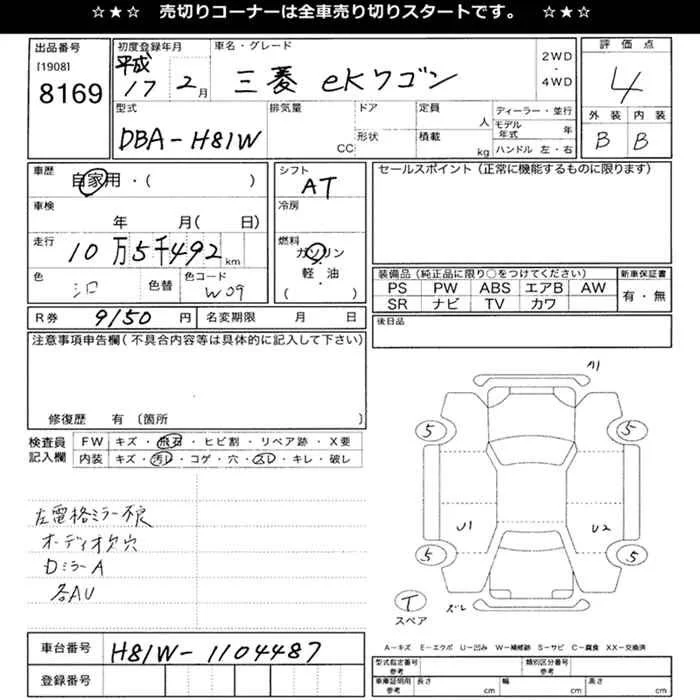 ☆★☆ 売切りコーナーは全車売り切りスタートです。 ☆★☆
出品番号
[1908]
8169
初度登録年月
平成
17 2月
車名・グレード
三菱 eKワゴン
2WD
・
4WD
評価点
4
外装 内装
B B
型式
DBA-H81W
排気量
CC
ドア
形状
定員
人
積載
kg
ディーラー・並行
モデル年式 年
ハンドル 左・右
車歴
自家用・( )
車検
年 月( 日)
走行
10万5千492km
色
色替
色コード
W09
シフト
AT
冷房
燃料
ガソリン
軽・油
( )
セールスポイント(正常に機能するものに限ります)
装備品(純正品に限り○をつけてください)
PS PW ABS エアB AW
SR ナビ TV カワ
新車保証書
有・無
R券 9150円
名変期限 月 日
後日品
注意事項申告欄(不具合内容等は具体的に記入して下さい)
修復歴 有〔箇所 〕
検査員
記入欄
FW キズ・飛石・ヒビ割・リペア跡・X要
内装 キズ・汚レ・コゲ・穴・スレ・キレ・破レ
左電格ミラー不良
オーディオ欠穴
DミラーA
各AU
5 5
U1 U2
5 5
T
スペア
ズレ
A-キズ E-エクボ U-凹み W-補修跡 S-サビ C-腐食 XX-交換済
車台番号
H81W-1104487
登録番号
型式指定番号
参考
類別区分番号
参考
車庫証明用
参考
長さ cm
幅 cm
高さ cm